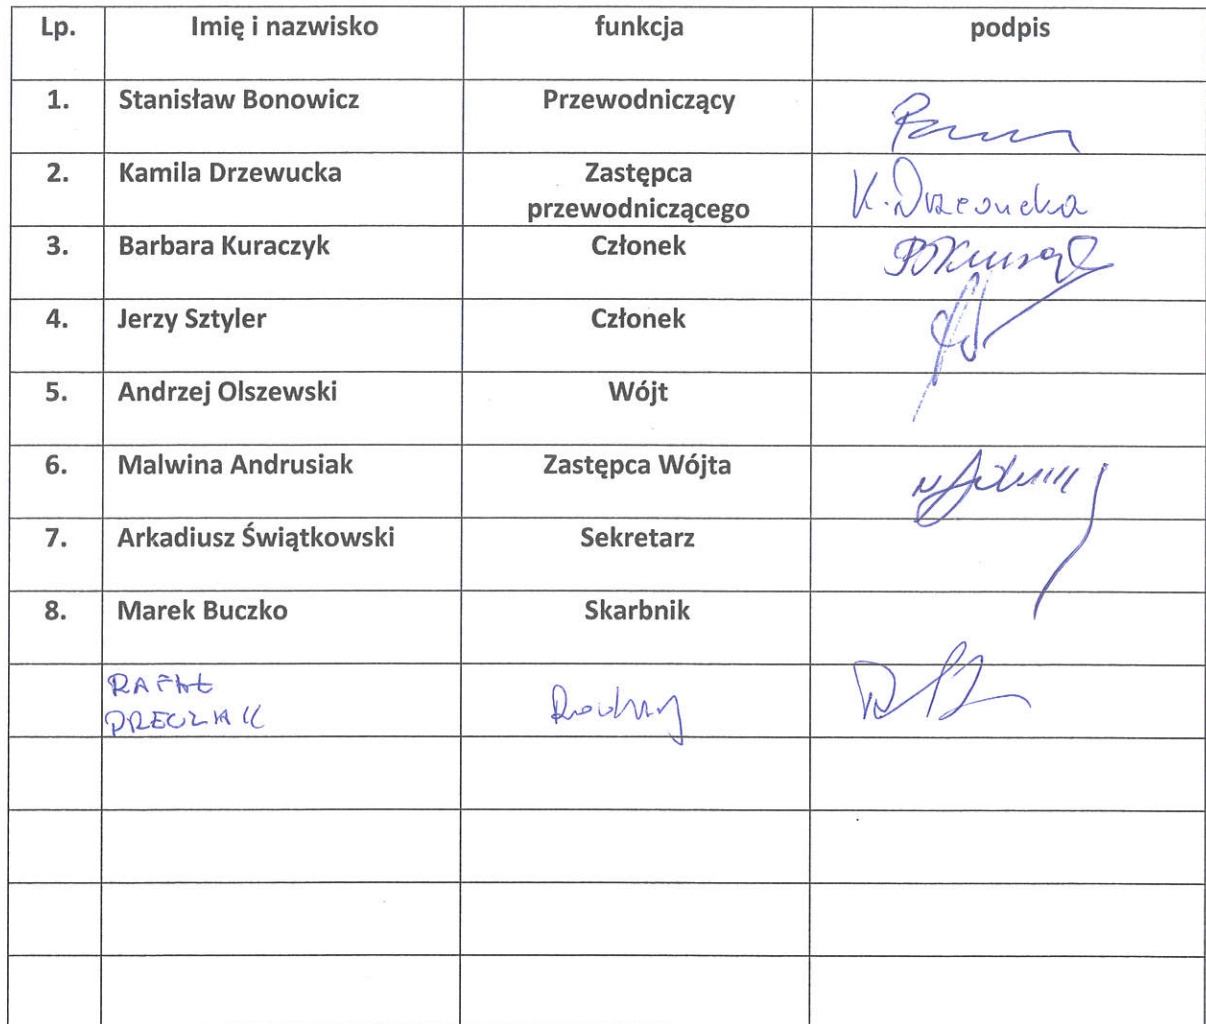 Lp. Imię i nazwisko funkcja podpis
1. Stanisław Bonowicz Przewodniczący
2. Kamila Drzewucka Zastępca przewodniczącego K. Drzewucka
3. Barbara Kuraczyk Członek
4. Jerzy Sztyler Członek
5. Andrzej Olszewski Wójt
6. Malwina Andrusiak Zastępca Wójta
7. Arkadiusz Świątkowski Sekretarz
8. Marek Buczko Skarbnik
RAFAŁ Radny